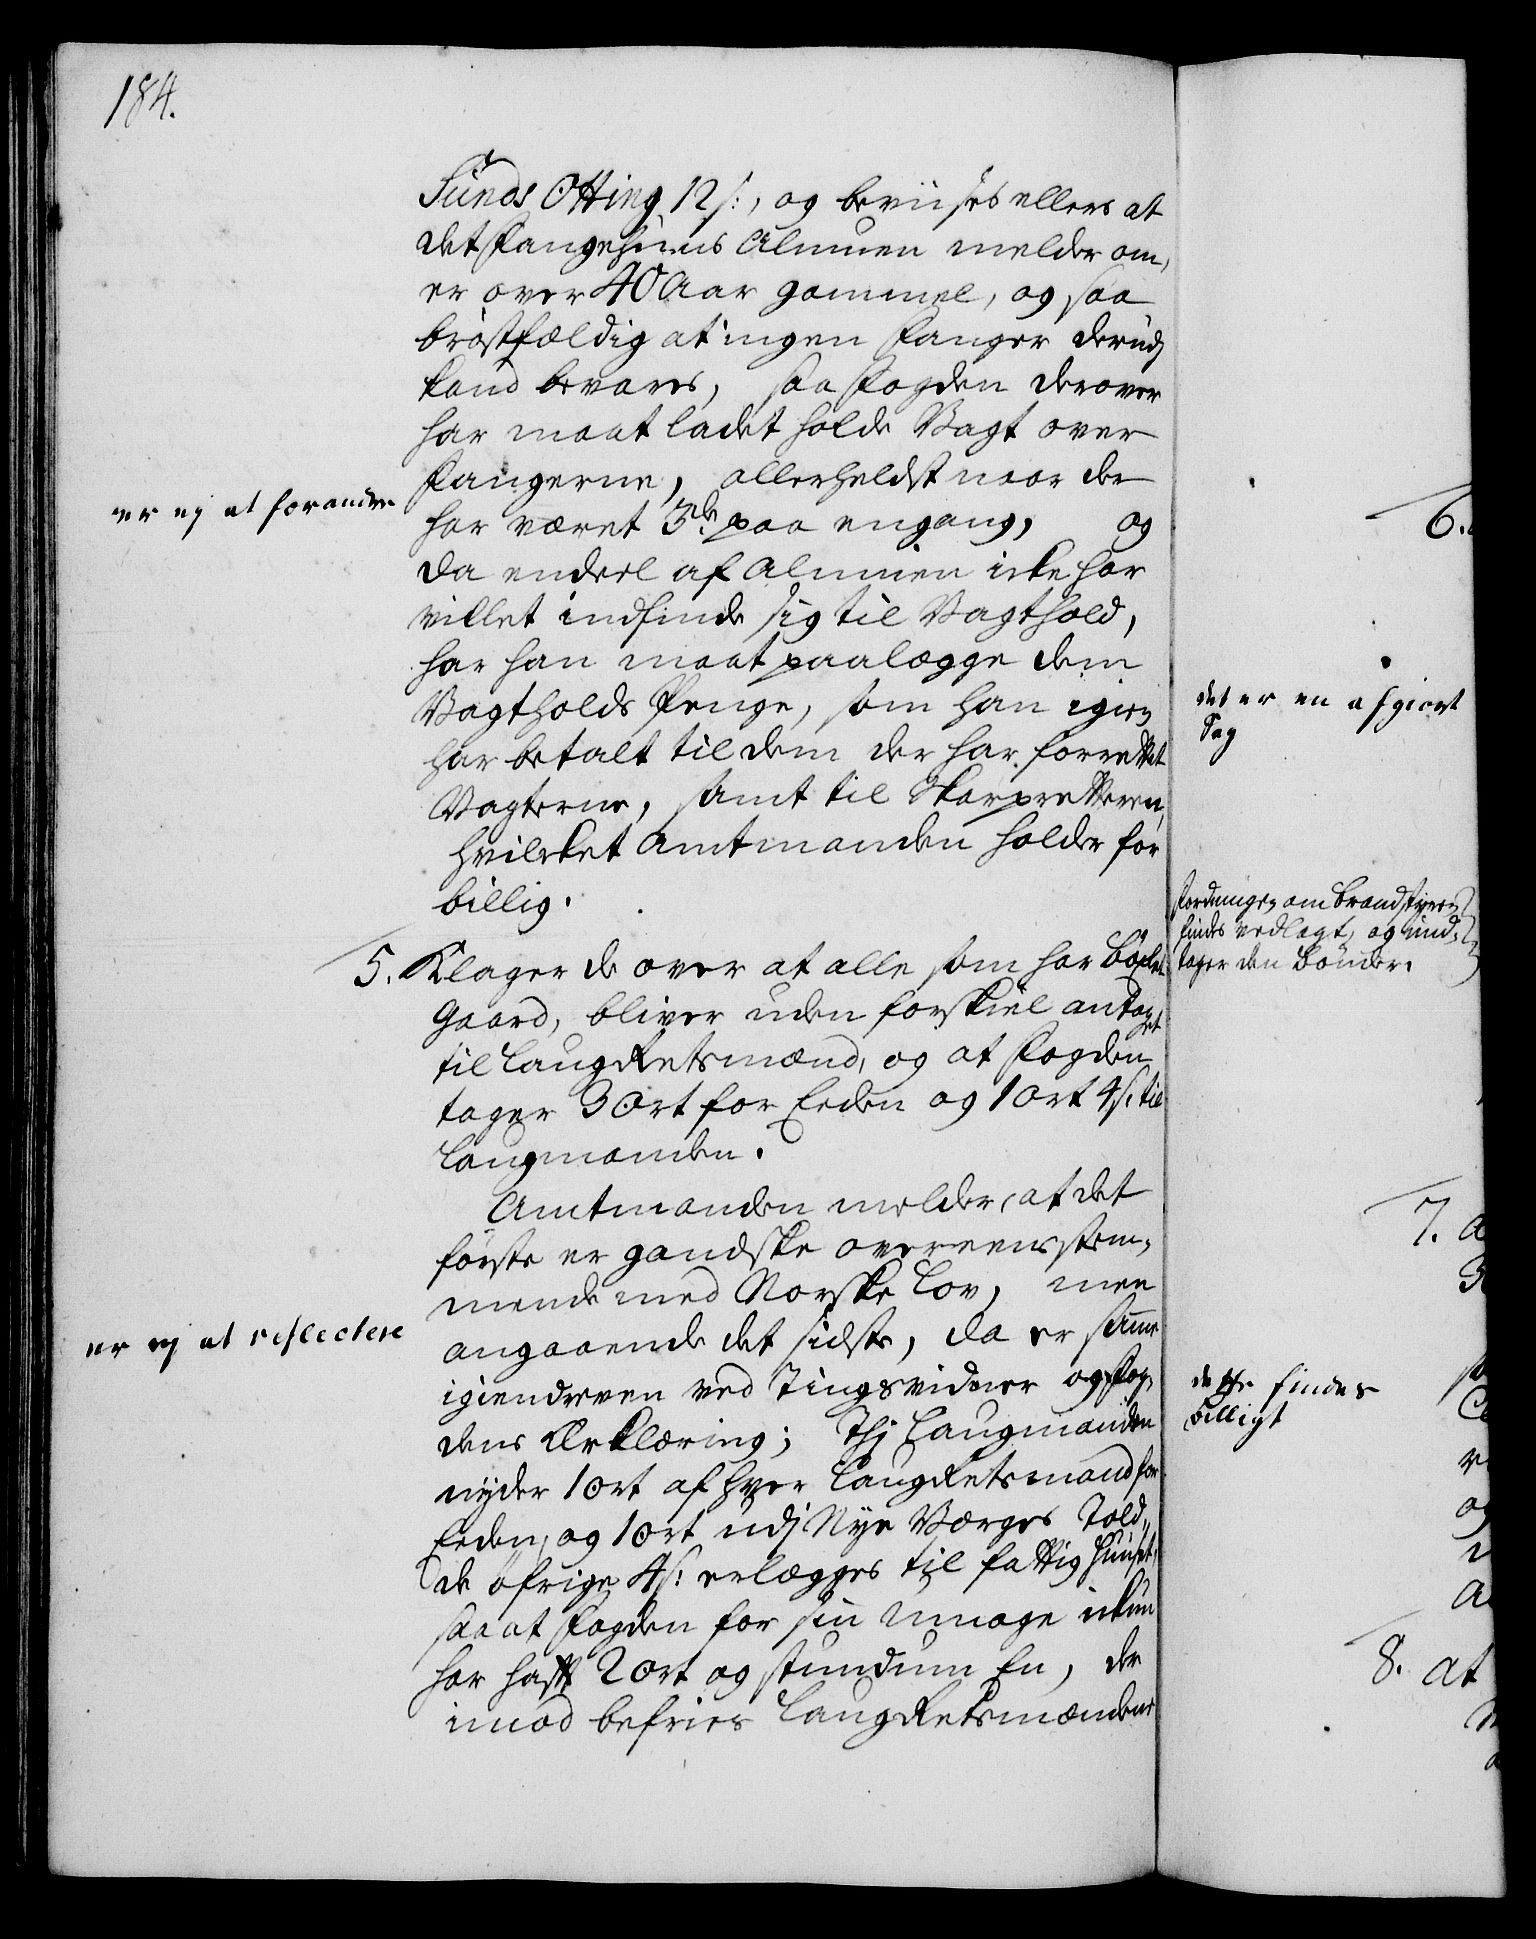 184.
Sunds Otting 12 s:, og beviises ellers at
det Fangehuus Almuen melder om,
er over 40 Aar gammel, og saa
bröstfældig at ingen Fanger derudj
kand bevares, saa Fogden derover
har maat ladet holde Vagt over
Fangerne, allerheldst naar der
er ej at forandre
har været 3de paa engang, og
da endeel af Almuen icke har
villet indfinde sig til Vagthold,
har han maat paalægge dem
Vagtholds Penge, som han igien
har betalt til dem der har forrettet
Vagterne, samt til Skarpretteren,
hvilcket Amtmanden holder for
billig.
5. Klager de over at alle som har böxlet
Gaard, bliver uden forskiel antaget
til LaugRetsmænd, og at Fogden
tager 3 Ort for Eeden og 1 Ort 4 s: til
Laugmanden.
Amtmanden melder, at det
förste er gandske overeensstem-
mende med Norske Lov, men
er ej at reflectere
angaaende det sidste, da er samme
igiendreven ved Tingsvidner og Fog-
dens Erklæring; Thj Laugmanden
nyder 1 Ort af hver LaugRetsmand for
Eeden, og 1 Ort udj Nye Værges Told,
de öfrige 4 s: erlægges til fattig Huuset,
saa at Fogden for sin Umage ickun
har hafft 2 Ort og stundum En, der
imod befries LaugRetsmændene
6.
det er en afgiort
Sag
Fordningen om Brandstyren
findes vedlagt, og und-
tager den Bönder.
7. A
dette findes
billigt
8. At